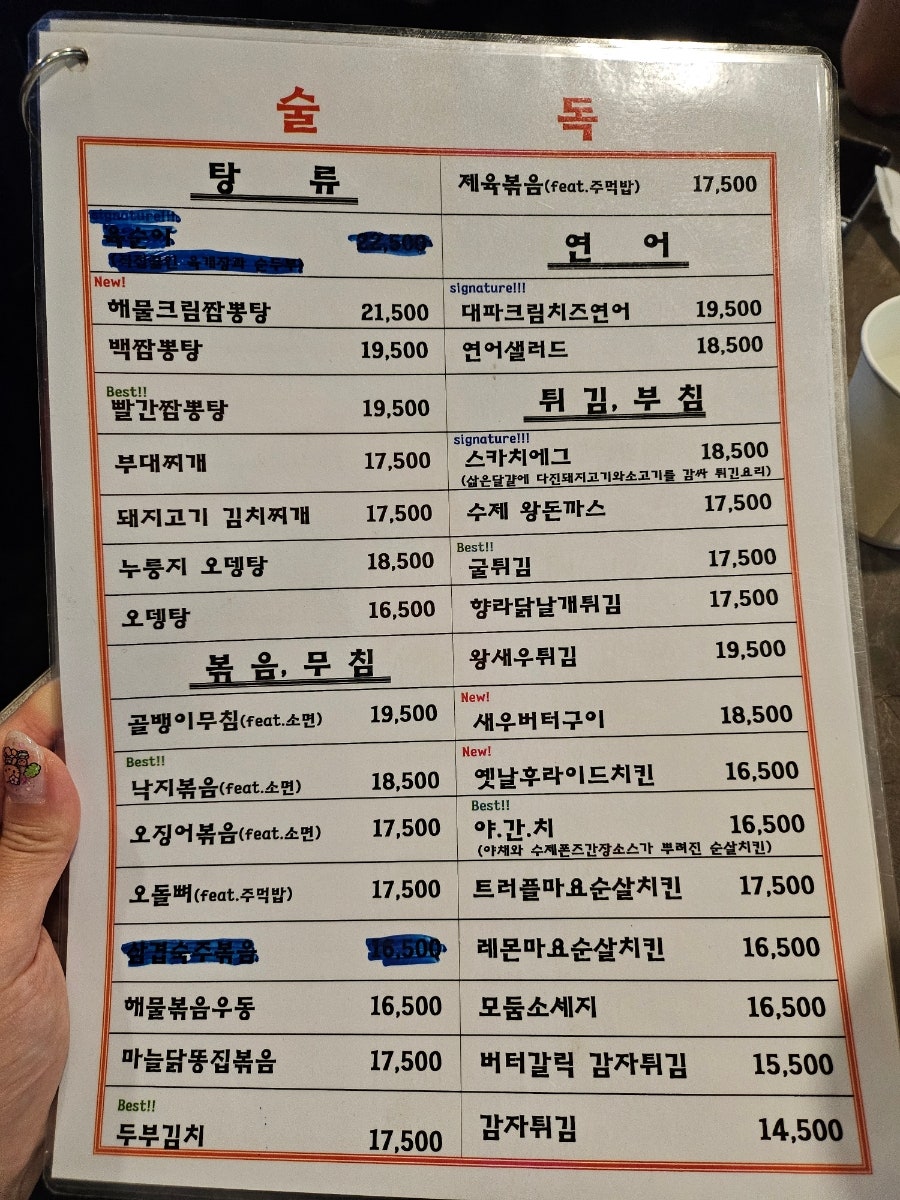 술 독
탕 류
signature!!!
육순이 22,500
New!
해물크림짬뽕탕 21,500
백짬뽕탕 19,500
Best!!
빨간짬뽕탕 19,500
부대찌개 17,500
돼지고기 김치찌개 17,500
누룽지 오뎅탕 18,500
오뎅탕 16,500
볶 음, 무 침
골뱅이무침(feat.소면) 19,500
Best!!
낙지볶음(feat.소면) 18,500
오징어볶음(feat.소면) 17,500
오돌뼈(feat.주먹밥) 17,500
삼겹숙주볶음 16,500
해물볶음우동 16,500
마늘닭똥집볶음 17,500
Best!!
두부김치 17,500
제육볶음(feat.주먹밥) 17,500
연 어
signature!!!
대파크림치즈연어 19,500
연어샐러드 18,500
튀 김, 부 침
signature!!!
스카치에그 18,500
(삶은달걀에 다진돼지고기와소고기를 감싸 튀긴요리)
수제 왕돈까스 17,500
Best!!
굴튀김 17,500
향라닭날개튀김 17,500
왕새우튀김 19,500
New!
새우버터구이 18,500
New!
옛날후라이드치킨 16,500
Best!!
야.간.치 16,500
(야채와 수제폰즈간장소스가 뿌려진 순살치킨)
트러플마요순살치킨 17,500
레몬마요순살치킨 16,500
모둠소세지 16,500
버터갈릭 감자튀김 15,500
감자튀김 14,500